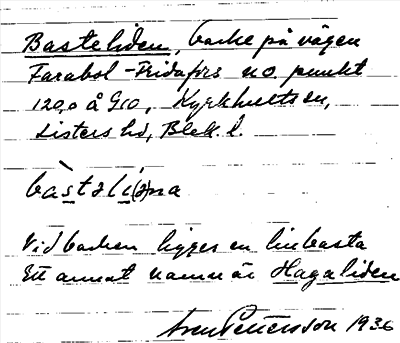 Basteliden, backe på vägen
Farabol-Fridafors no. punkt
120,0 å G10, Kyrkhults sn,
Listers hd, Blek. l.
bàstəlí(ə)na
Vid backen ligger en linbasta
Ett annat namn är Hagaliden
Sven Pettersson 1936